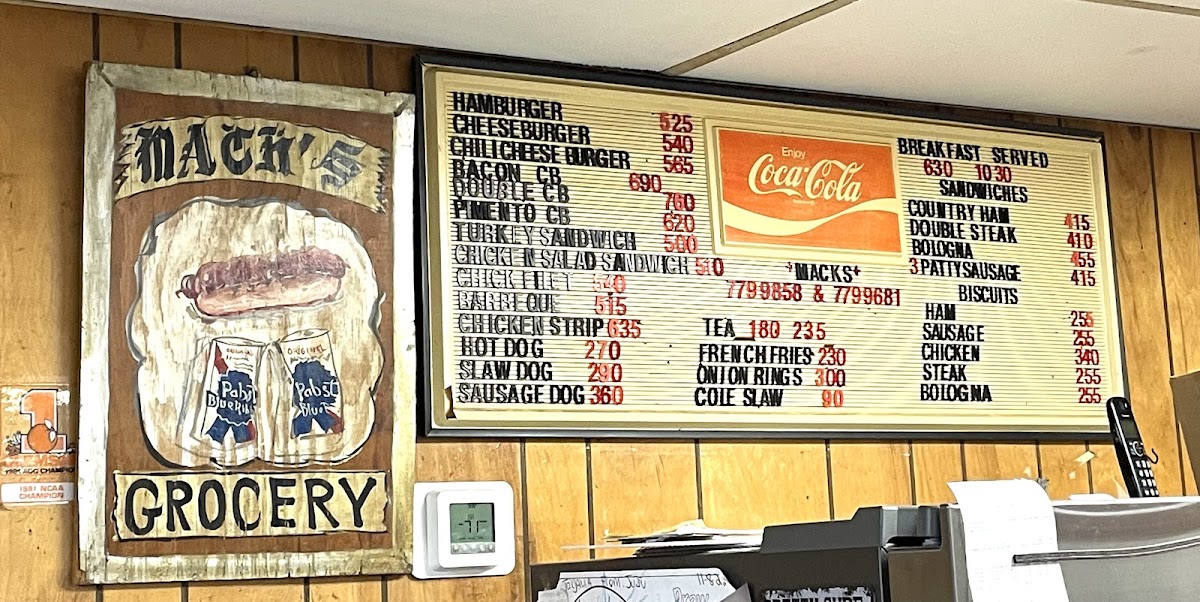 MACK'S
GROCERY
ORIGINAL
Pabst
Blue Rib
ORIGINAL
Pabst
Blue
1
1981 ACC CHAMPION
1981 NCAA
CHAMPION
HAMBURGER 525
CHEESEBURGER 540
CHILICHEESE BURGER 565
BACON CB 690
DOUBLE CB 760
PIMENTO CB 620
TURKEY SANDWICH 500
CHICKEN SALAD SANDWICH 510
CHICK FILET 540
BARBEQUE 515
CHICKEN STRIP 635
HOT DOG 270
SLAW DOG 290
SAUSAGE DOG 360
Enjoy
Coca-Cola
*MACKS*
7799858 & 7799681
TEA 180 235
FRENCH FRIES 230
ONION RINGS 300
COLE SLAW 90
BREAKFAST SERVED
630 1030
SANDWICHES
COUNTRY HAM 415
DOUBLE STEAK 410
BOLOGNA 455
3 PATTY SAUSAGE 415
BISCUITS
HAM 255
SAUSAGE 255
CHICKEN 340
STEAK 255
BOLOGNA 255